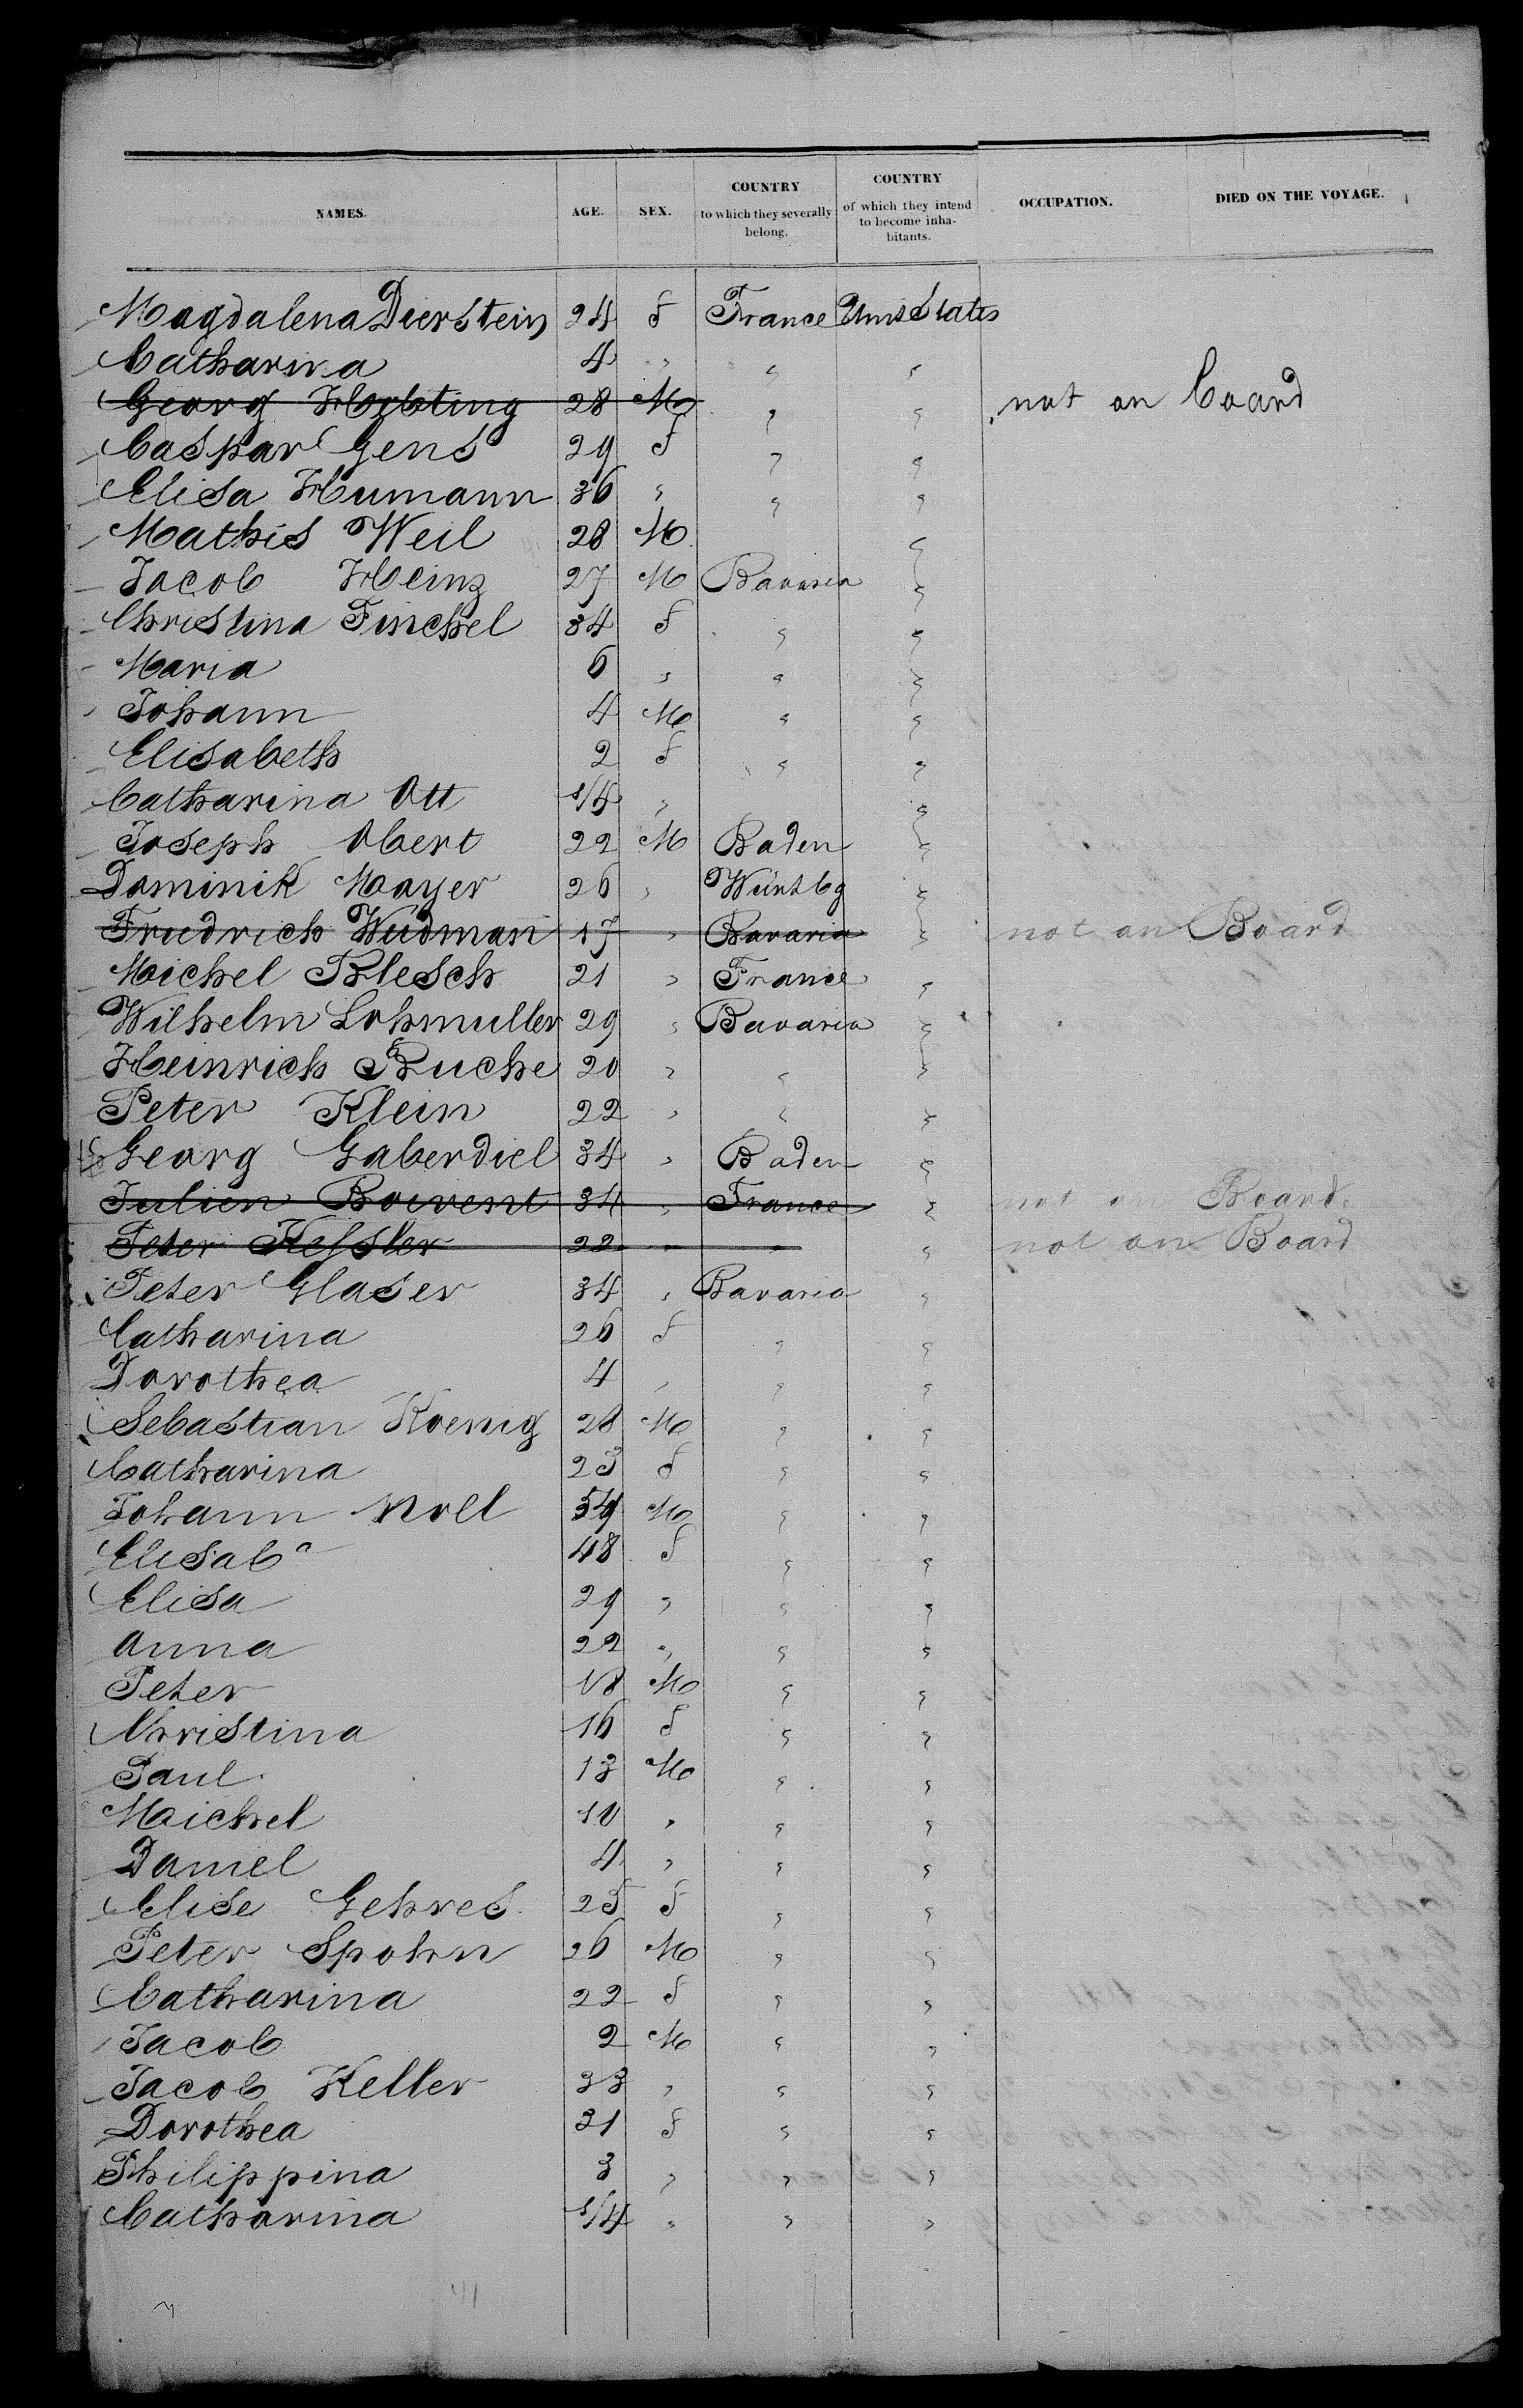 NAMES. AGE. SEX. COUNTRY to which they severally belong. COUNTRY of which they intend to become inhabitants. OCCUPATION. DIED ON THE VOYAGE.
Magdalena Dierstein 24 f France Unid States
Catharina 4 " " "
Georg 28 M " " not on board
Caspar Gens 29 f " "
Elisa Humann 36 " " "
Mathis Weil 28 M "
Jacob Heinz 27 M Bavaria "
Christina Finchel 34 f " "
Maria 6 " " "
Johann 4 M " "
Elisabeth 2 f " "
Catharina Ott 1/4 " "
Joseph Obert 22 M Baden "
Dominik Mayer 26 " Würtbg "
Friedrich Weidman 17 " Bavaria " not on Board
Michel Klesch 21 " France "
Wilhelm Lohmuller 29 " Bavaria "
Heinrich Ruche 20 " " "
Peter Klein 22 " " "
Georg Gaberdiel 34 " Baden "
Julien Boivent 34 " France " not on Board
Peter Kessler 22 " " " not on Board
Peter Glaser 34 " Bavaria "
Catharina 26 f " "
Dorothea 4 " " "
Sebastian Koenig 28 M " "
Catharina 23 f " "
Johann Noll 54 M " "
Elisaba 48 f " "
Elisa 29 " " "
Anna 22 " " "
Peter 18 M " "
Christina 16 f " "
Paul 13 M " "
Michel 10 " " "
Daniel 4 " " "
Elise Gehres 25 f " "
Peter Spohn 26 M " "
Catharina 22 f " "
Jacob 2 M " "
Jacob Keller 33 " " "
Dorothea 31 f " "
Philippina 3 " " "
Catharina 1/4 " " "